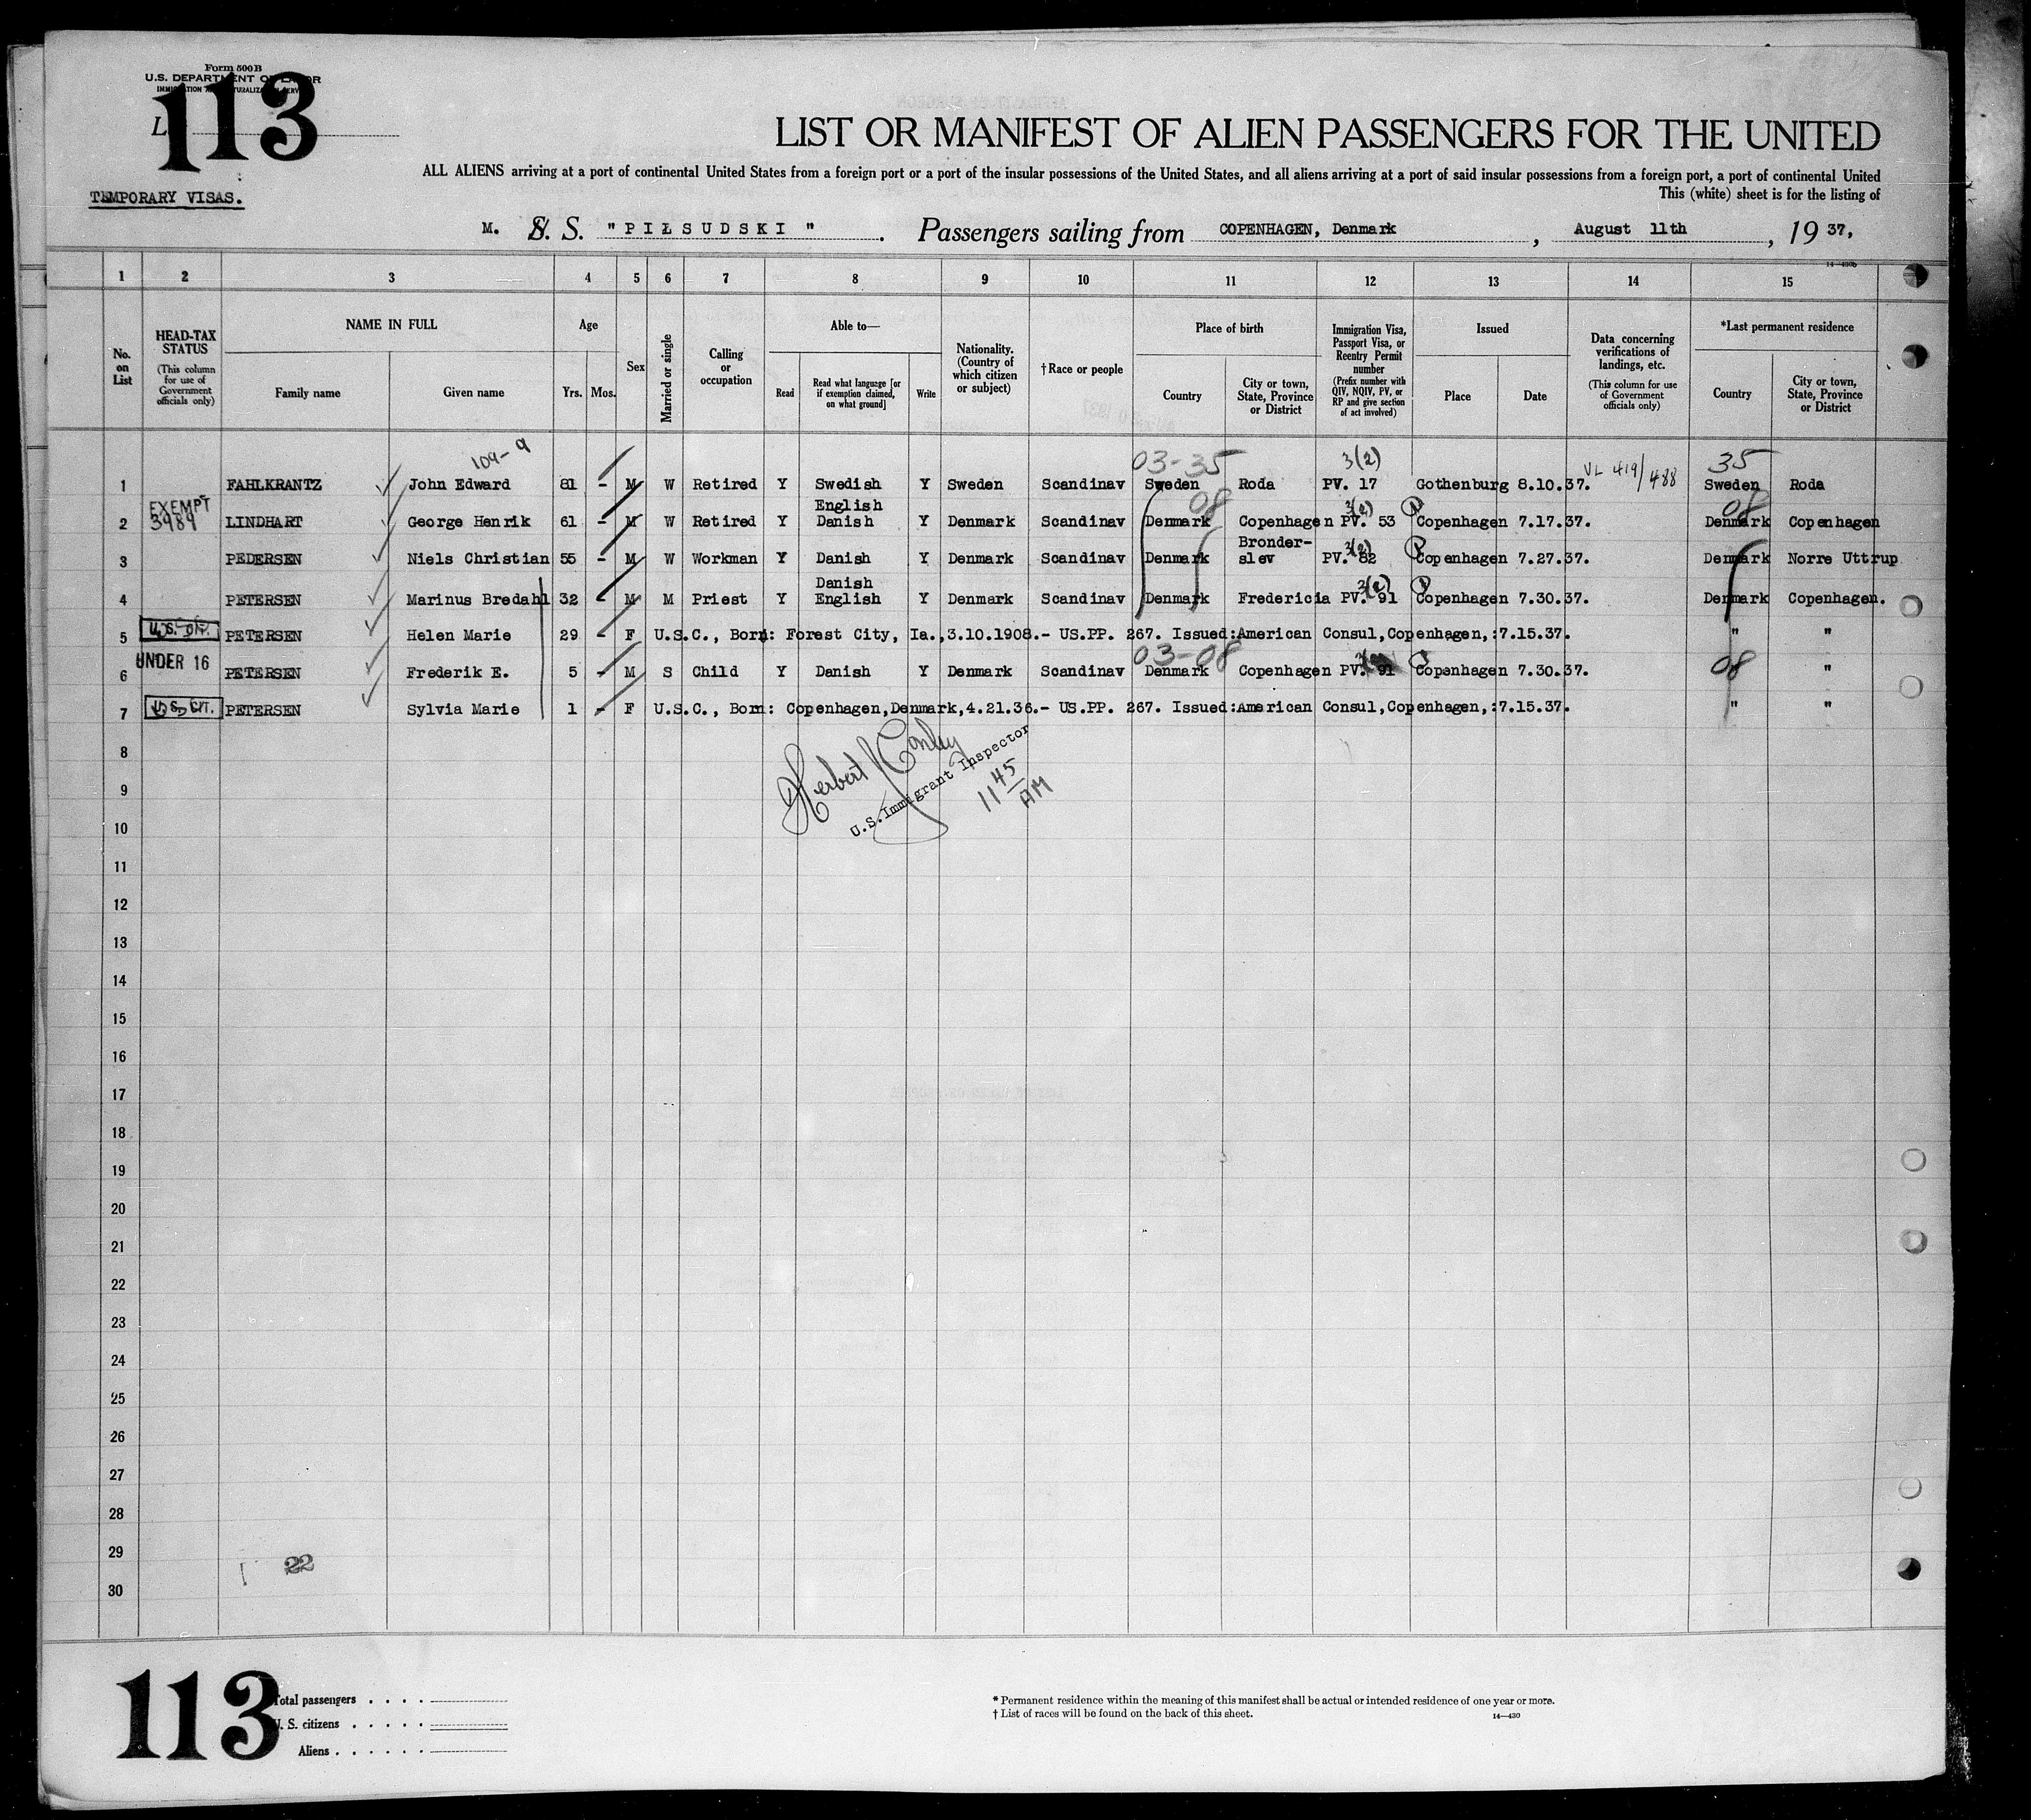 Form 500B
U.S. DEPARTMENT OF LABOR
113
TEMPORARY VISAS.
LIST OR MANIFEST OF ALIEN PASSENGERS FOR THE UNITED
ALL ALIENS arriving at a port of continental United States from a foreign port or a port of the insular possessions of the United States, and all aliens arriving at a port of said insular possessions from a foreign port, a port of continental United
This (white) sheet is for the listing of
M. S. S. "PIŁSUDSKI". Passengers sailing from COPENHAGEN, Denmark, August 11th, 19 37,
14-430b
1 2 3 4 5 6 7 8 9 10 11 12 13 14 15
No. on List
HEAD-TAX STATUS (This column for use of Government officials only)
NAME IN FULL Family name Given name
Age Yrs. Mos.
Sex
Married or single
Calling or occupation
Able to— Read Read what language [or if exemption claimed, on what ground] Write
Nationality. (Country of which citizen or subject)
†Race or people
Place of birth Country City or town, State, Province or District
Immigration Visa, Passport Visa, or Reentry Permit number (Prefix number with QIV, NQIV, PV, or RP and give section of act involved)
Issued Place Date
Data concerning verifications of landings, etc. (This column for use of Government officials only)
*Last permanent residence Country City or town, State, Province or District
109-9 03-35 3(2) VL 419/488 35
1 FAHLKRANTZ John Edward 81 - M W Retired Y Swedish Y Sweden Scandinav Sweden Roda PV. 17 Gothenburg 8.10.37. Sweden Roda
EXEMPT 3989 English 08 3(2) 08
2 LINDHART George Henrik 61 - M W Retired Y Danish Y Denmark Scandinav Denmark Copenhagen PV. 53 Copenhagen 7.17.37. Denmark Copenhagen
Bronder- 3(2)
3 PEDERSEN Niels Christian 55 - M W Workman Y Danish Y Denmark Scandinav Denmark slev PV. 82 Copenhagen 7.27.37. Denmark Norre Uttrup
Danish 3(2)
4 PETERSEN Marinus Bredahl 32 - M M Priest Y English Y Denmark Scandinav Denmark Fredericia PV. 91 Copenhagen 7.30.37. Denmark Copenhagen.
U.S. CIT.
5 PETERSEN Helen Marie 29 - F U.S.C., Born: Forest City, Ia.,3.10.1908.- US.PP. 267. Issued:American Consul,Copenhagen,:7.15.37. " "
UNDER 16 03-08 08
6 PETERSEN Frederik E. 5 - M S Child Y Danish Y Denmark Scandinav Denmark Copenhagen PV. 91 Copenhagen 7.30.37. " "
U.S. CIT.
7 PETERSEN Sylvia Marie 1 - F U.S.C., Born: Copenhagen,Denmark,4.21.36.- US.PP. 267. Issued:American Consul,Copenhagen,:7.15.37. " "
8
Herbert J Conley
U.S.Immigrant Inspector
11 45 AM
9
10
11
12
13
14
15
16
17
18
19
20
21
22
23
24
25
26
27
28
29
22
30
113
Total passengers . . . .
U. S. citizens . . . . .
Aliens . . . . . .
* Permanent residence within the meaning of this manifest shall be actual or intended residence of one year or more.
† List of races will be found on the back of this sheet.
14—430